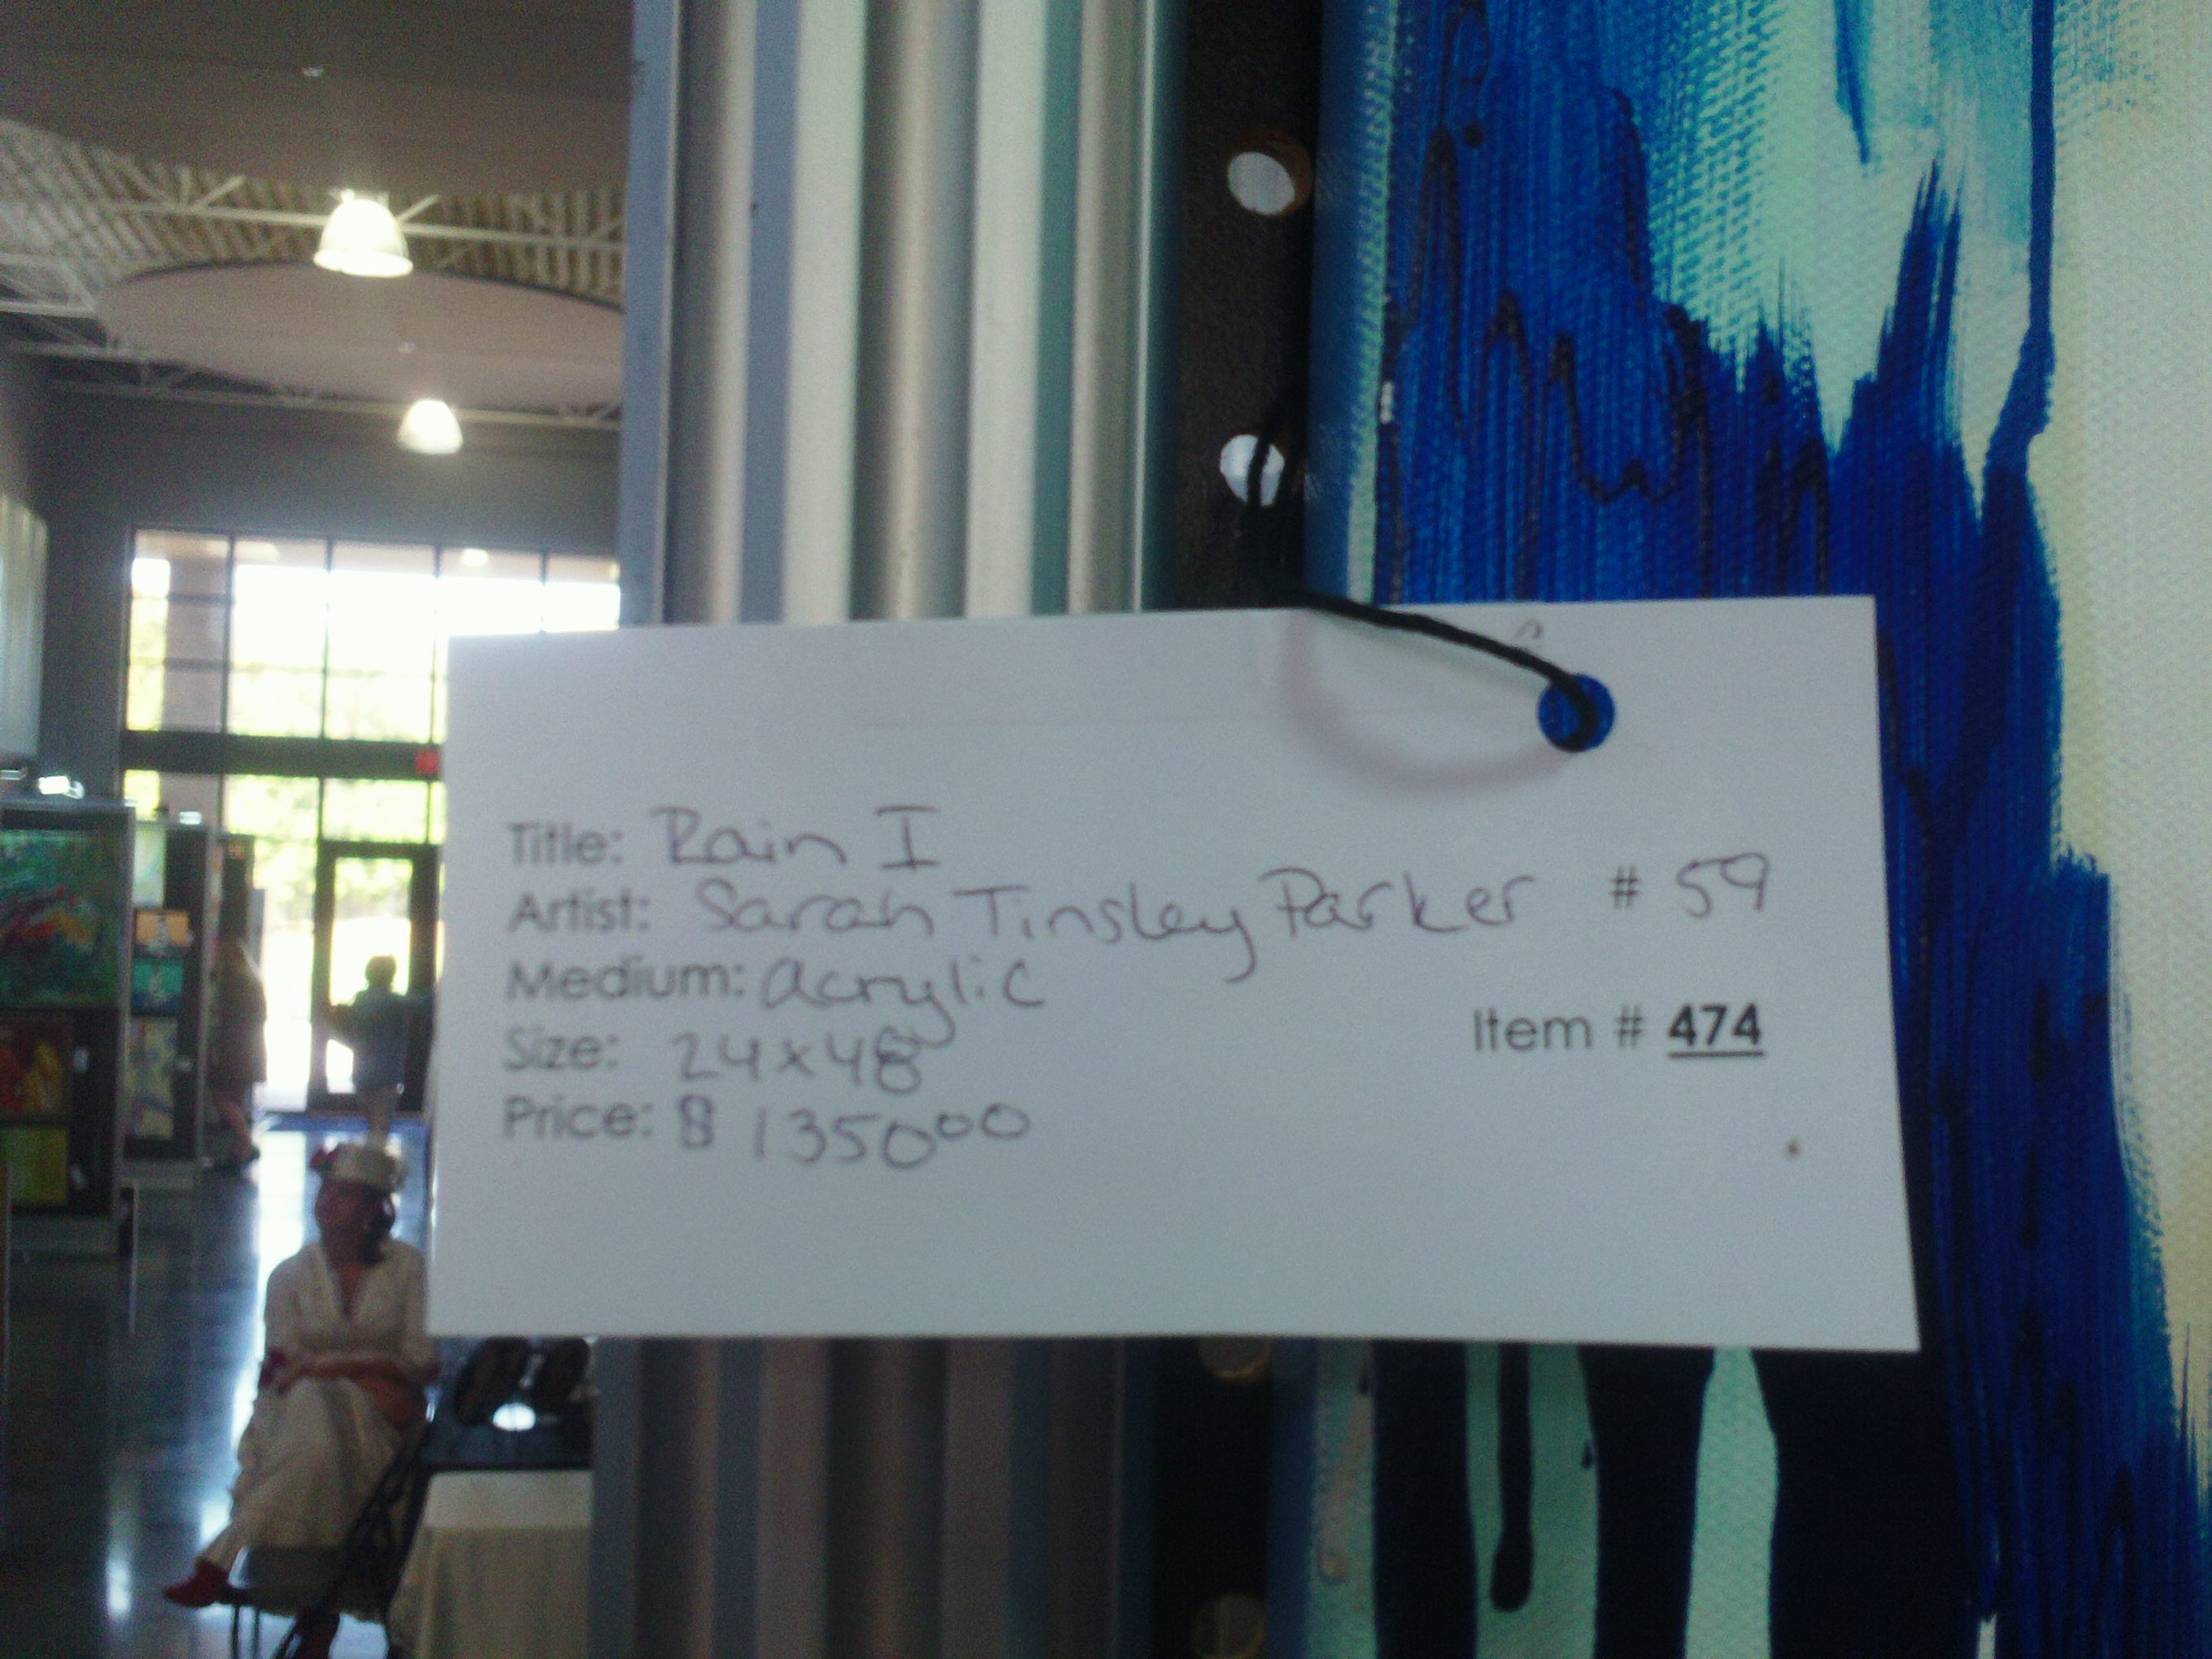 Title: Rain I
Artist: Sarah Tinsley Parker # 59
Medium: acrylic
Item # 474
Size: 24x48
Price: $ 1350⁰⁰